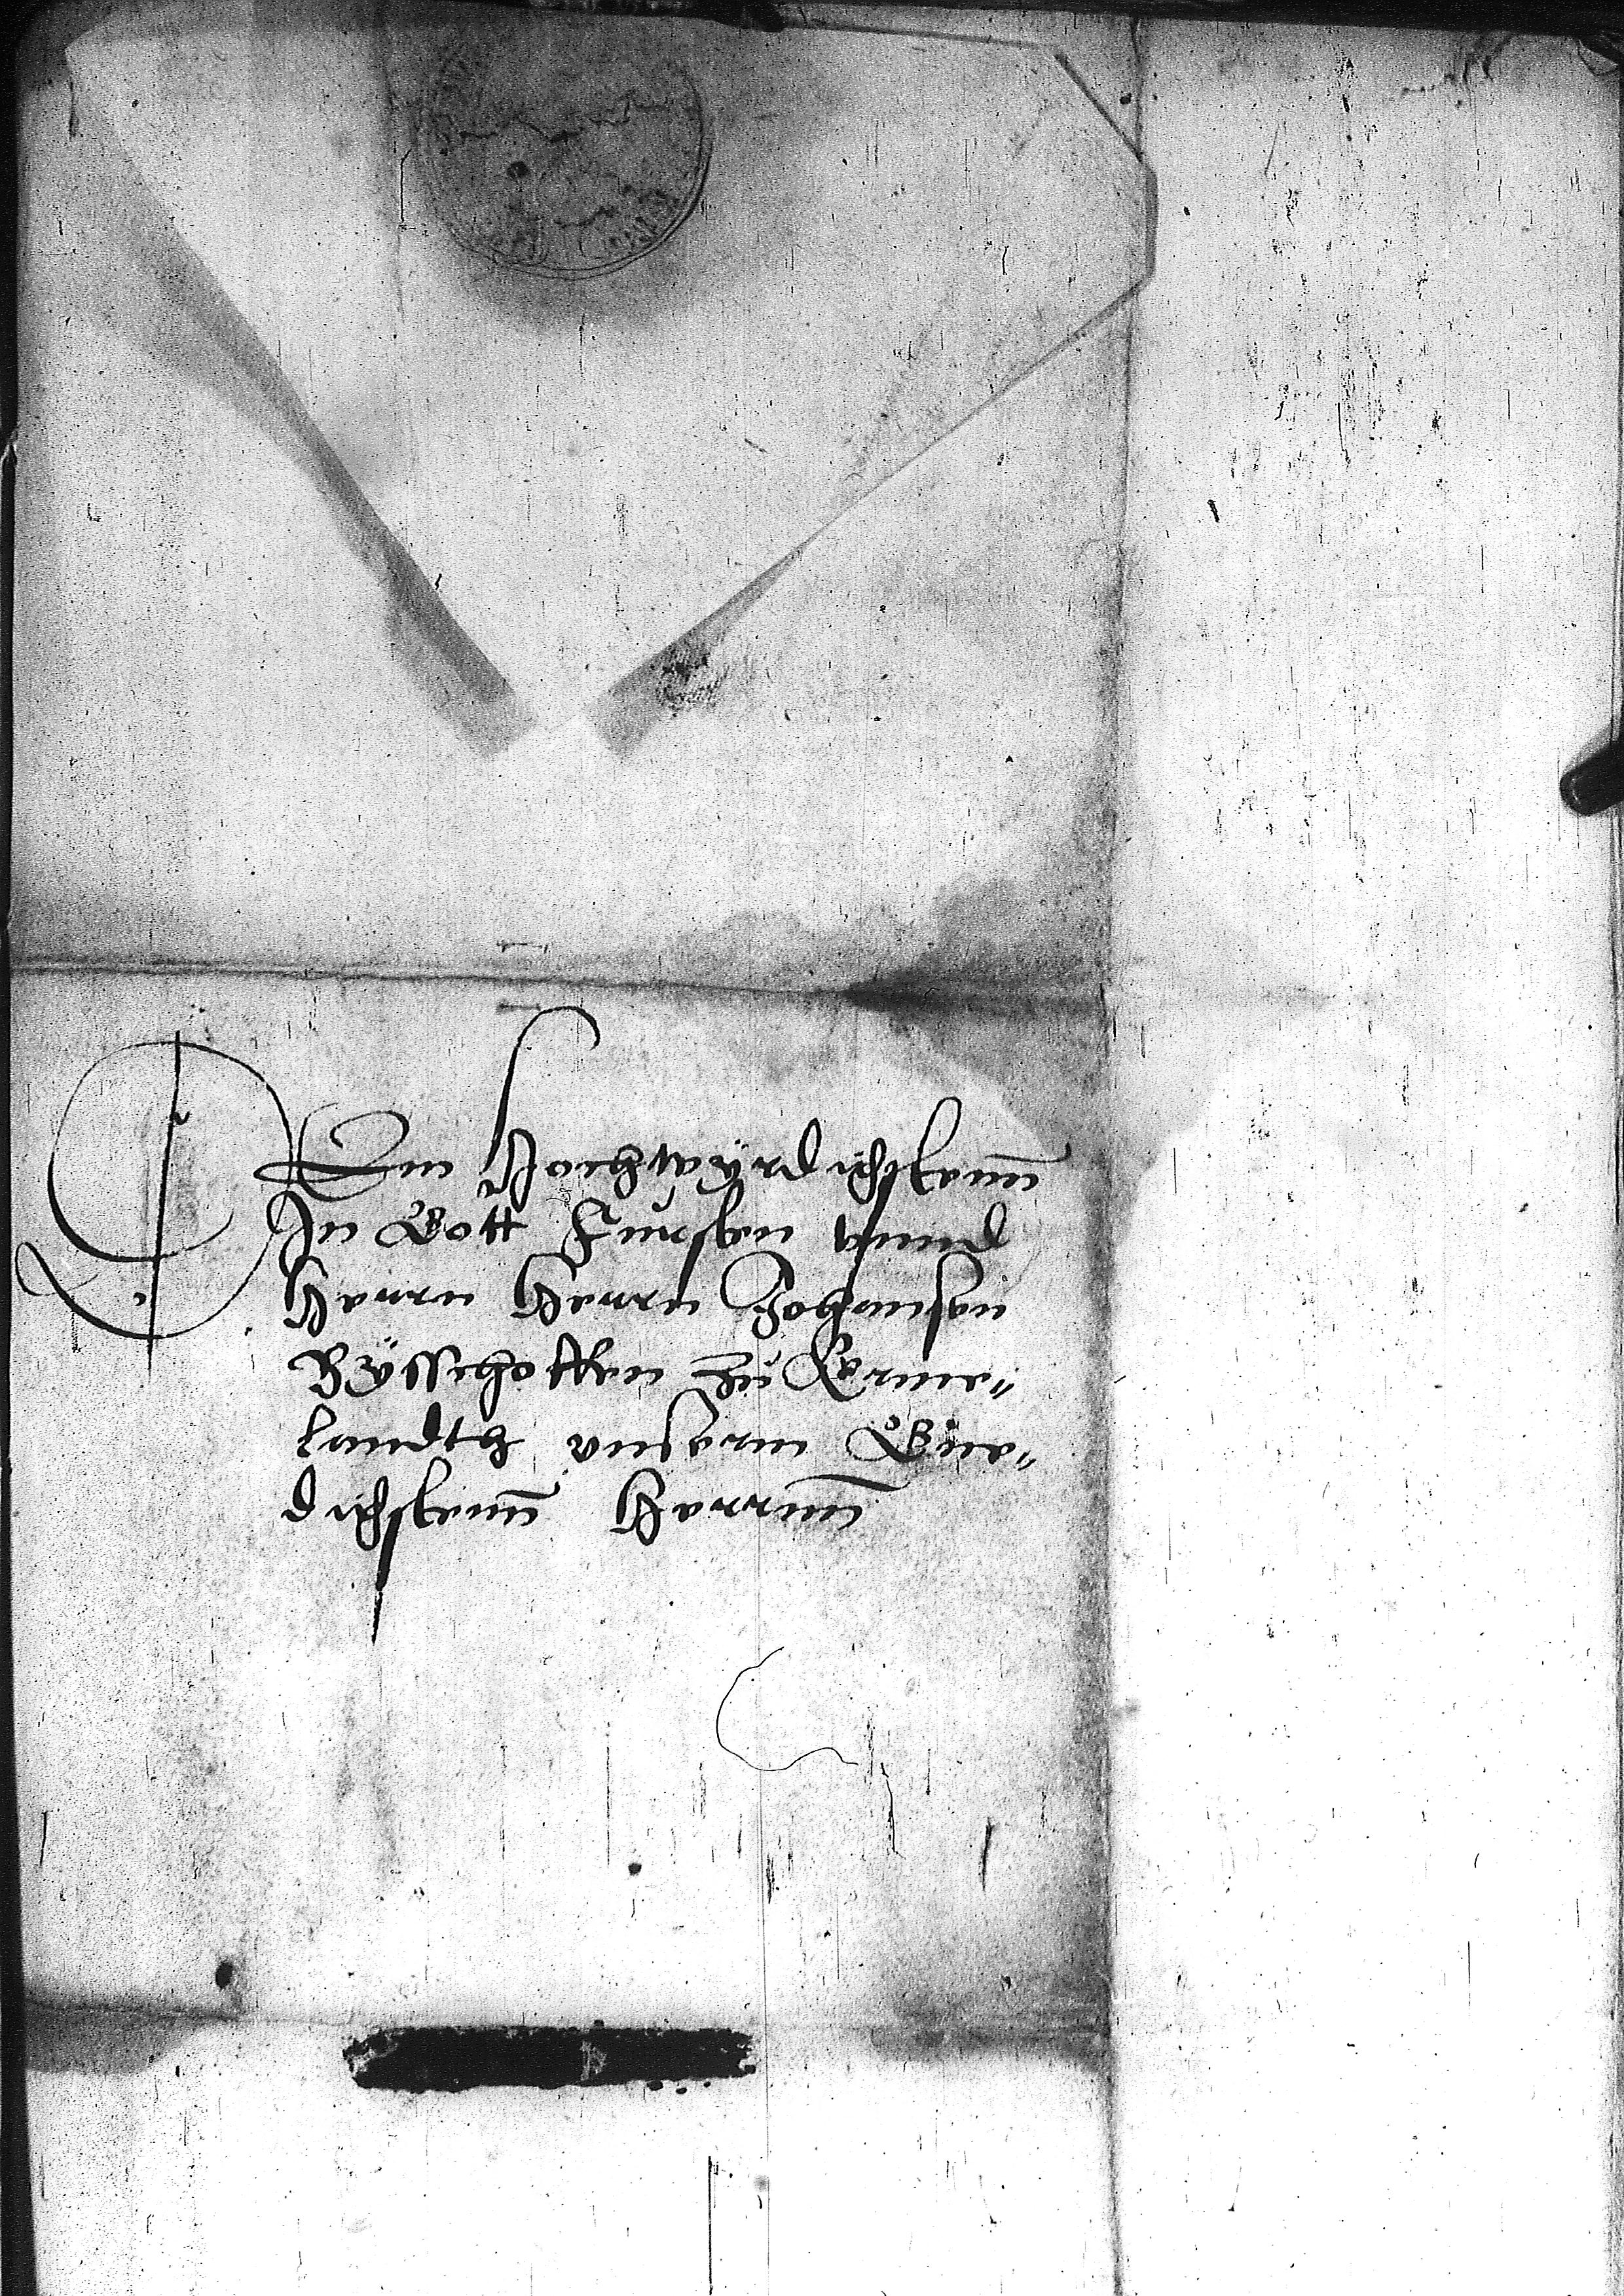 DEm Hochwÿrdigstenn
In Gott Furstenn vnnd
Herrn Herrn Johansen
Bÿsschoffen zu Erme„
landth vnserm Gne„
digstenn Herrnn